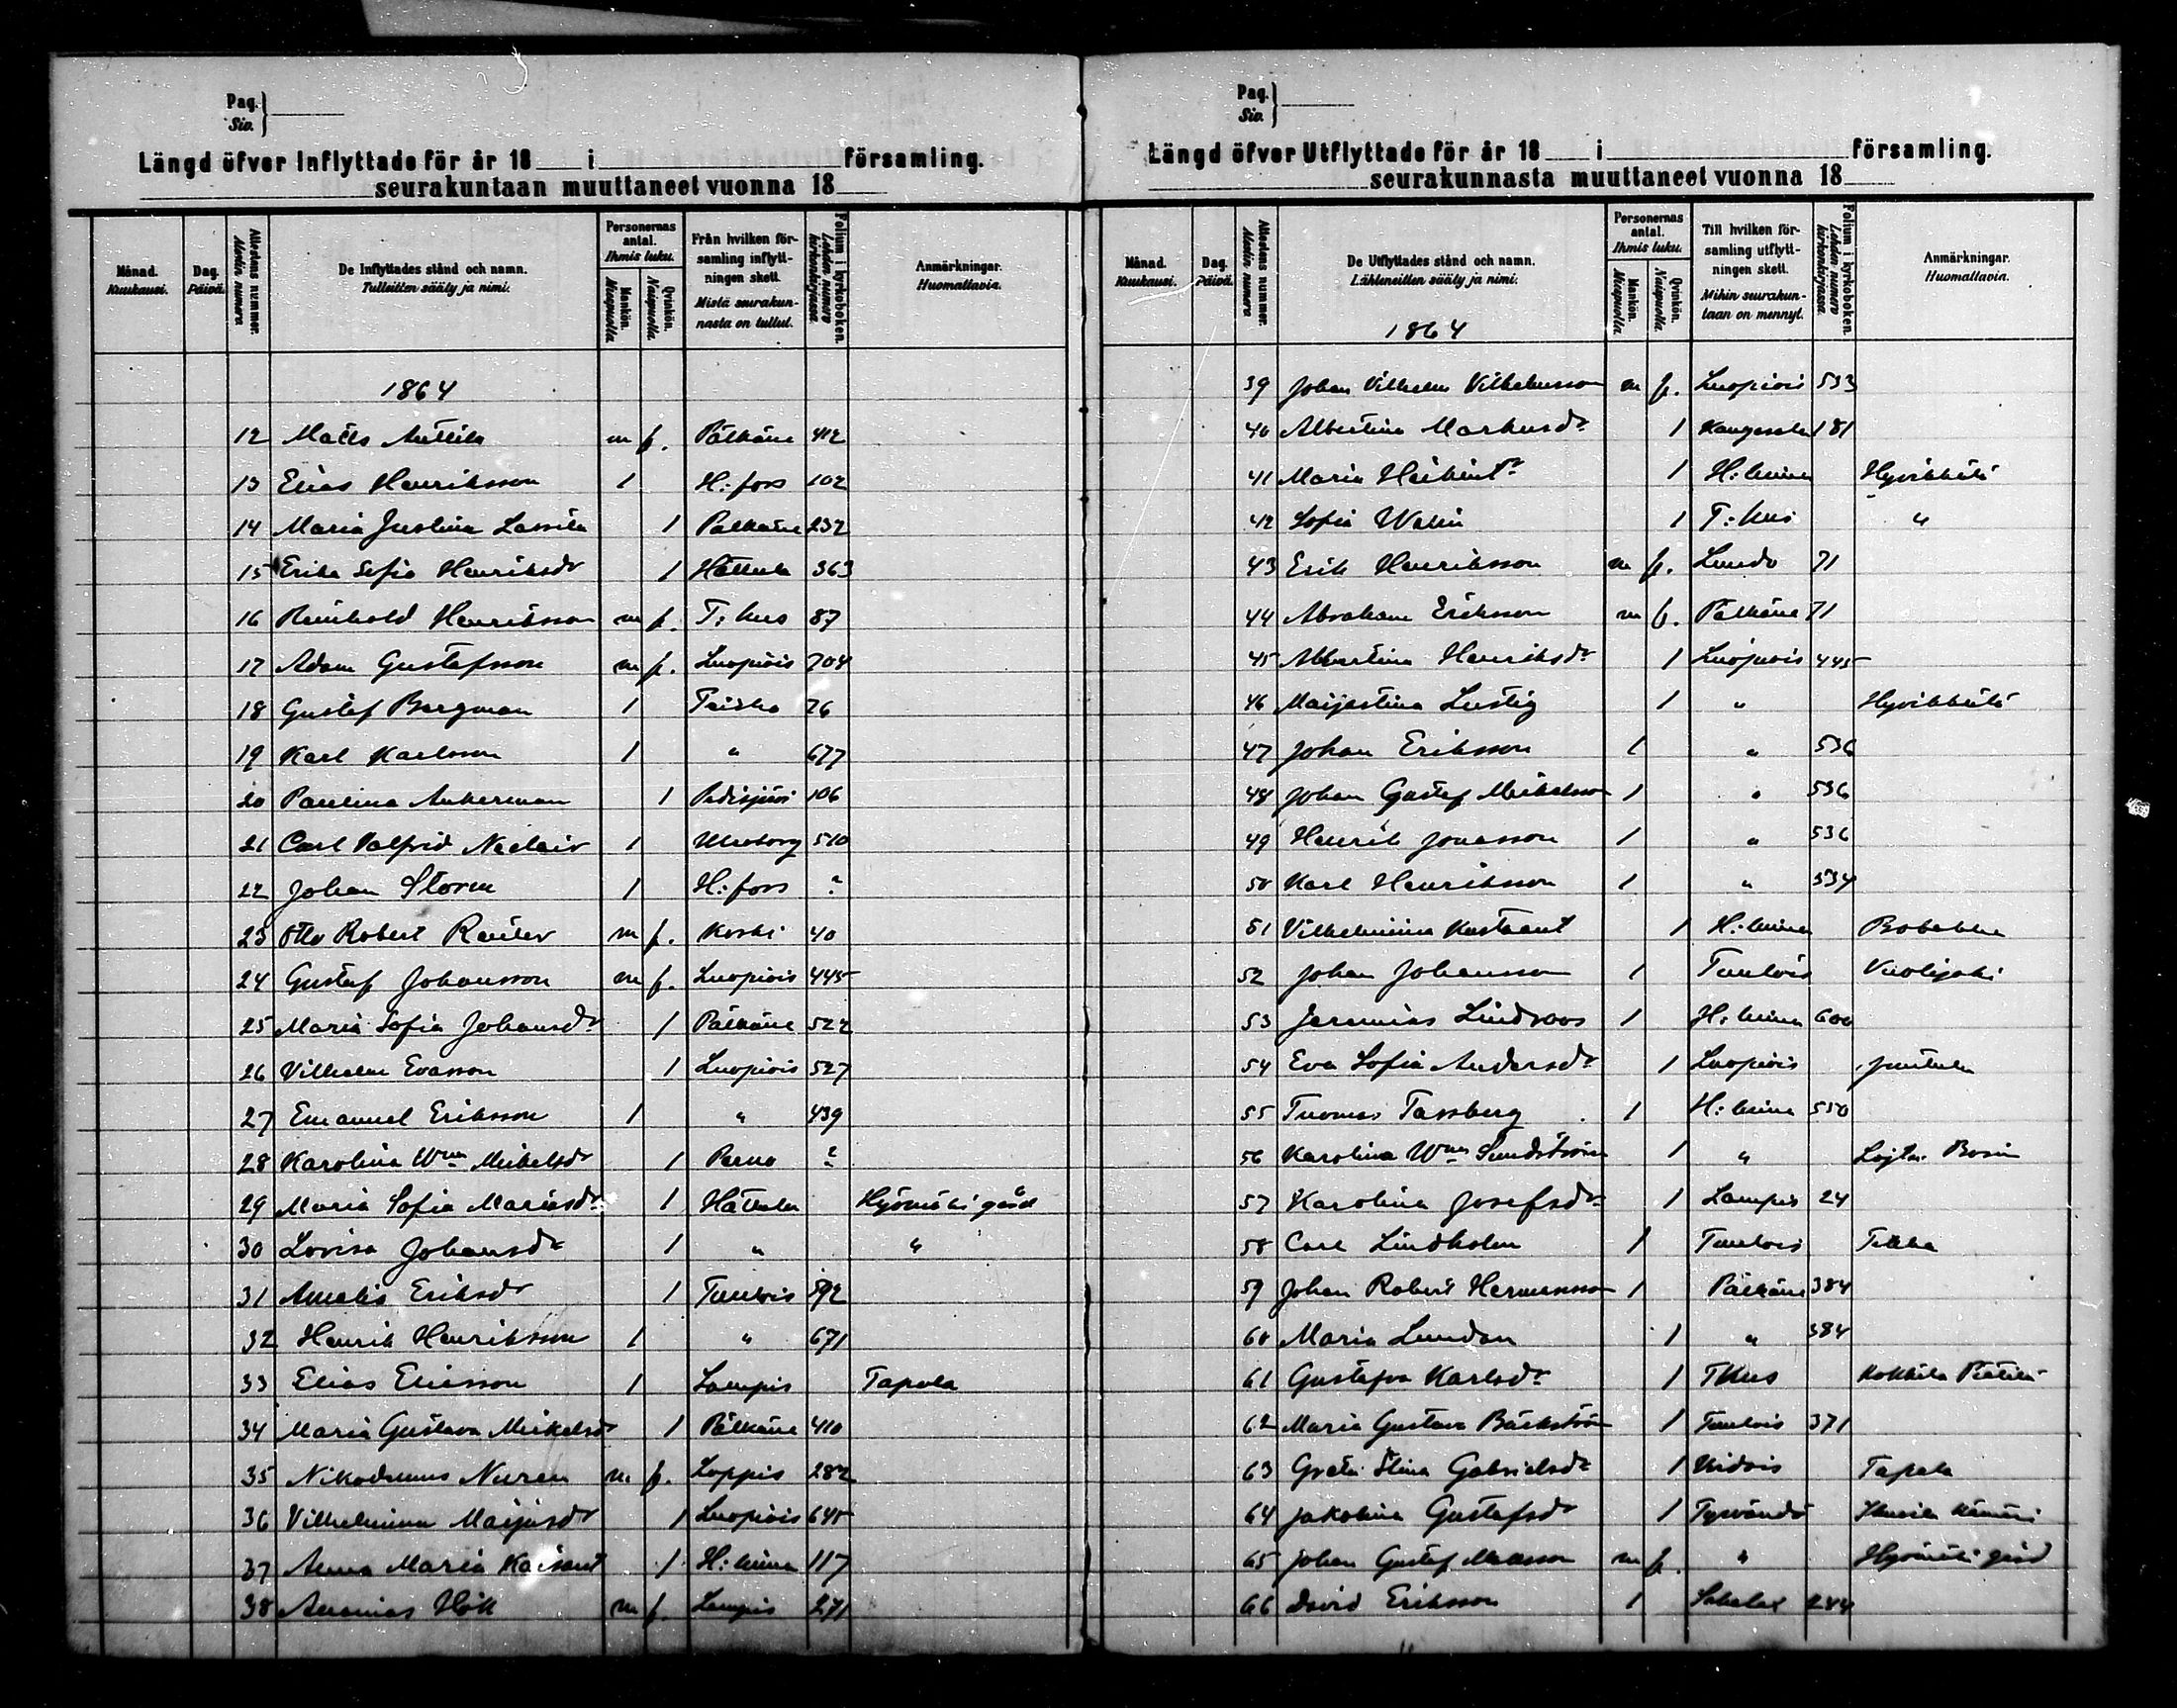 Pag.
Siv.
Längd öfver Inflyttade för år 18 i församling.
seurakuntaan muuttaneet vuonna 18
Månad. Kuukausi.
Dag. Päivä.
Attestens nummer. Todin numero
De Inflyttades stånd och namn.
Tulleitten sääty ja nimi.
Personernas antal. Ihmis luku.
Mankön. Miespuolia.
Qvinkön. Naispuolia.
Från hvilken för-
samling inflytt-
ningen skett.
Mistä seurakun-
nasta on tullut.
Folium i kyrkoboken. Lehden numero kirkonkirjassa.
Anmärkningar.
Huomattavia.
1864
12 Matts Anttila m f. Pälkäne 412
13 Elias Henriksson 1 H:fors 102
14 Maria Justina Lassila 1 Pälkäne 232
15 Erika Sofia Henriksdr 1 Hattula 363
16 Reinhold Henriksson m f. T:hus 87
17 Adam Gustafsson m f. Luopiois 704
18 Gustaf Bergman 1 Teisko 26
19 Karl Karlsson 1 " 677
20 Paulina Ankerman 1 Padasjoki 106
21 Carl Valfrid 1 Uleaborg 510
22 Johan Storm 1 H:fors ?
23 Otto Robert m f. Koski 40
24 Gustaf Johansson m f. Luopiois 445
25 Maria Sofia Johansdr 1 Pälkäne 522
26 Vilhelm Evasson 1 Luopiois 527
27 Emanuel Eriksson 1 " 439
28 Karolina Wna Mickelsdr 1 Perno ?
29 Maria Sofia Mariasdr 1 Hattula Hyömäki gård
30 Lovisa Johansdr 1 " "
31 Amalia Eriksdr 1 Tuulois 592
32 Henrik Henriksson 1 " 671
33 Elias Eliasson 1 Lampis Tapola
34 Maria Gustava Mickelsdr 1 Pälkäne 410
35 Nikodemus Nuren m f. Loppis 282
36 Vilhelmina Maijasdr 1 Luopiois 645
37 Anna Maria Kaisant 1 H:linna 117
38 Ananias Hök m f. Lampis 271
Pag.
Siv.
Längd öfver Utflyttade för år 18 i församling.
seurakunnasta muuttaneet vuonna 18
Månad. Kuukausi.
Dag. Päivä.
Attestens nummer. Todin numero
De Utflyttades stånd och namn.
Lähteneitten sääty ja nimi.
Personernas antal. Ihmis luku.
Mankön. Miespuolia.
Qvinkön. Naispuolia.
Till hvilken för-
samling utflytt-
ningen skett.
Mihin seurakun-
taan on mennyt.
Folium i kyrkoboken. Lehden numero kirkonkirjassa.
Anmärkningar.
Huomattavia.
1864
39 Johan Vilhelm Vilhelmsson m f. Luopiois 533
40 Albertina Markusdr 1 Kangasala 181
41 Maria 1 H:linna Hyvikkälä
42 Sofia Walin 1 T:hus "
43 Erik Henriksson m f. Lundo 71
44 Abraham Eriksson m f. Pälkäne 71
45 Albertina Henriksdr 1 Luopiois 445
46 Maijastina Lustig 1 " Hyvikkälä
47 Johan Eriksson 1 " 536
48 Johan Gustaf Mickelsson 1 " 536
49 Henrik Jonasson 1 " 536
50 Karl Henriksson 1 " 534
51 Vilhelmina Kustaant 1 H:linna
52 Johan Johansson 1 Tuulois Vuolijoki
53 Jeremias Lindroos 1 H:linna 600
54 Eva Sofia Andersdr 1 Luopiois Juttula
55 Tuomas Tassberg 1 H:linna 550
56 Karolina Wna Sundström 1 " Lojtn. Bosin
57 Karolina Josefsdr 1 Lampis 24
58 Carl Lindholm 1 Tuulois
59 Johan Robert Hermansson 1 Pälkäne 384
60 Maria Lundan 1 " 384
61 Gustafva Karlsdr 1 THus Kokkila Pietilä
62 Maria Gustava Bäckström 1 Tuulois 371
63 Greta Stina Gabrielsdr 1 Vidois Tapola
64 Jakobina Gustafsdr 1 Tyrvändö
65 Johan Gustaf Matsson m f. " Hyömäki gård
66 David Eriksson 1 Sahalax 244